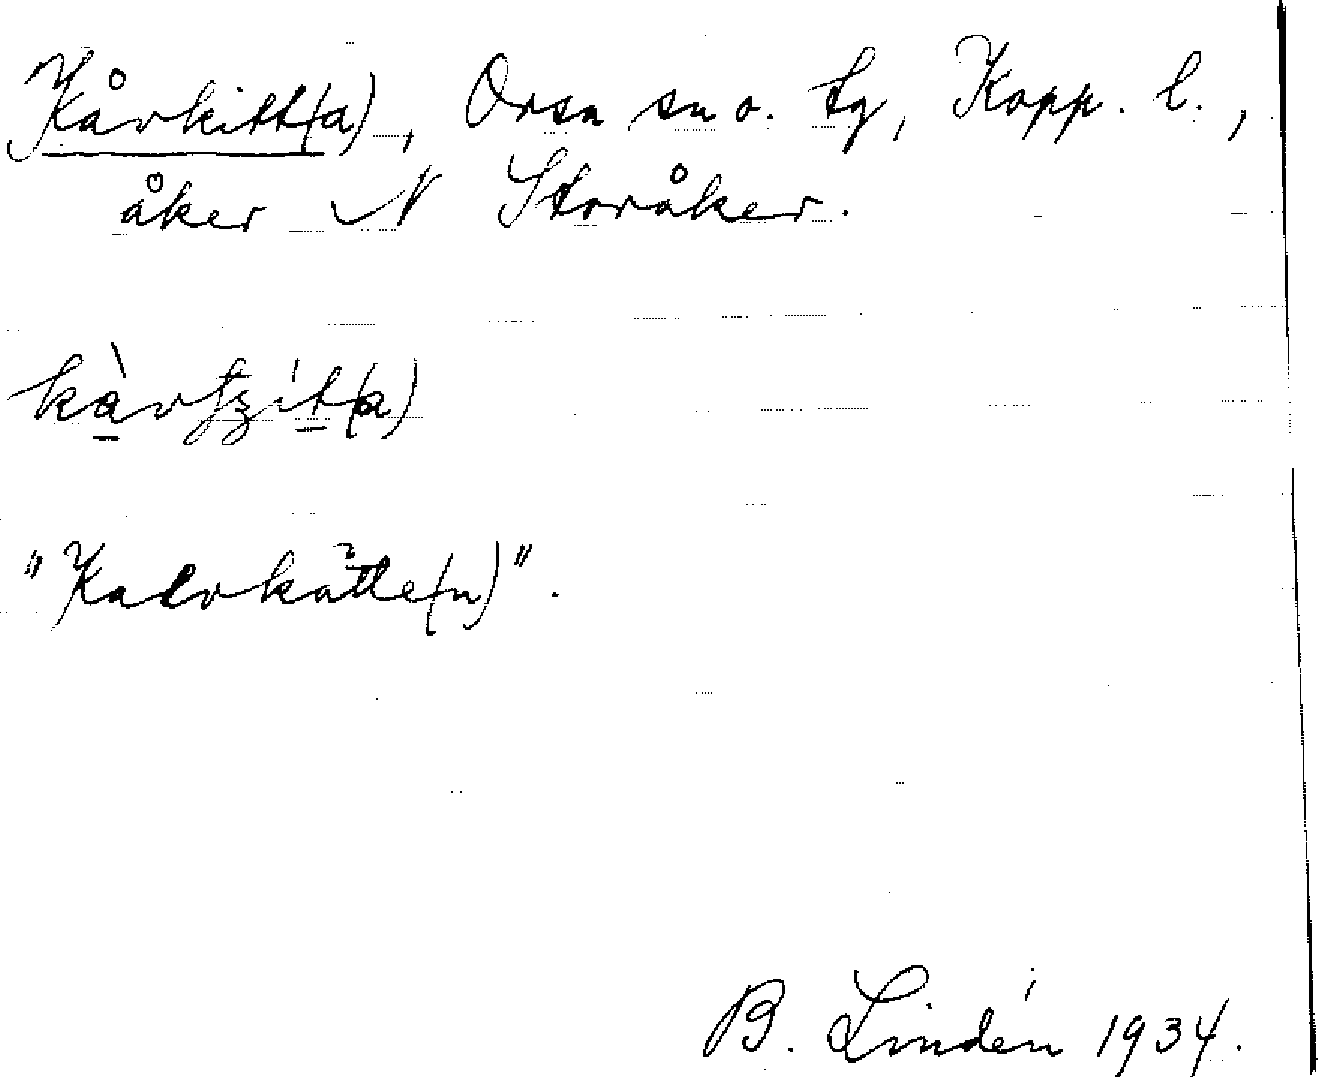 Kåvkitt(a), Orsa sn o. tg, Kopp. l.,
åker N Storåker.
"Kalvkätte(n)".
B. Lindén 1934.